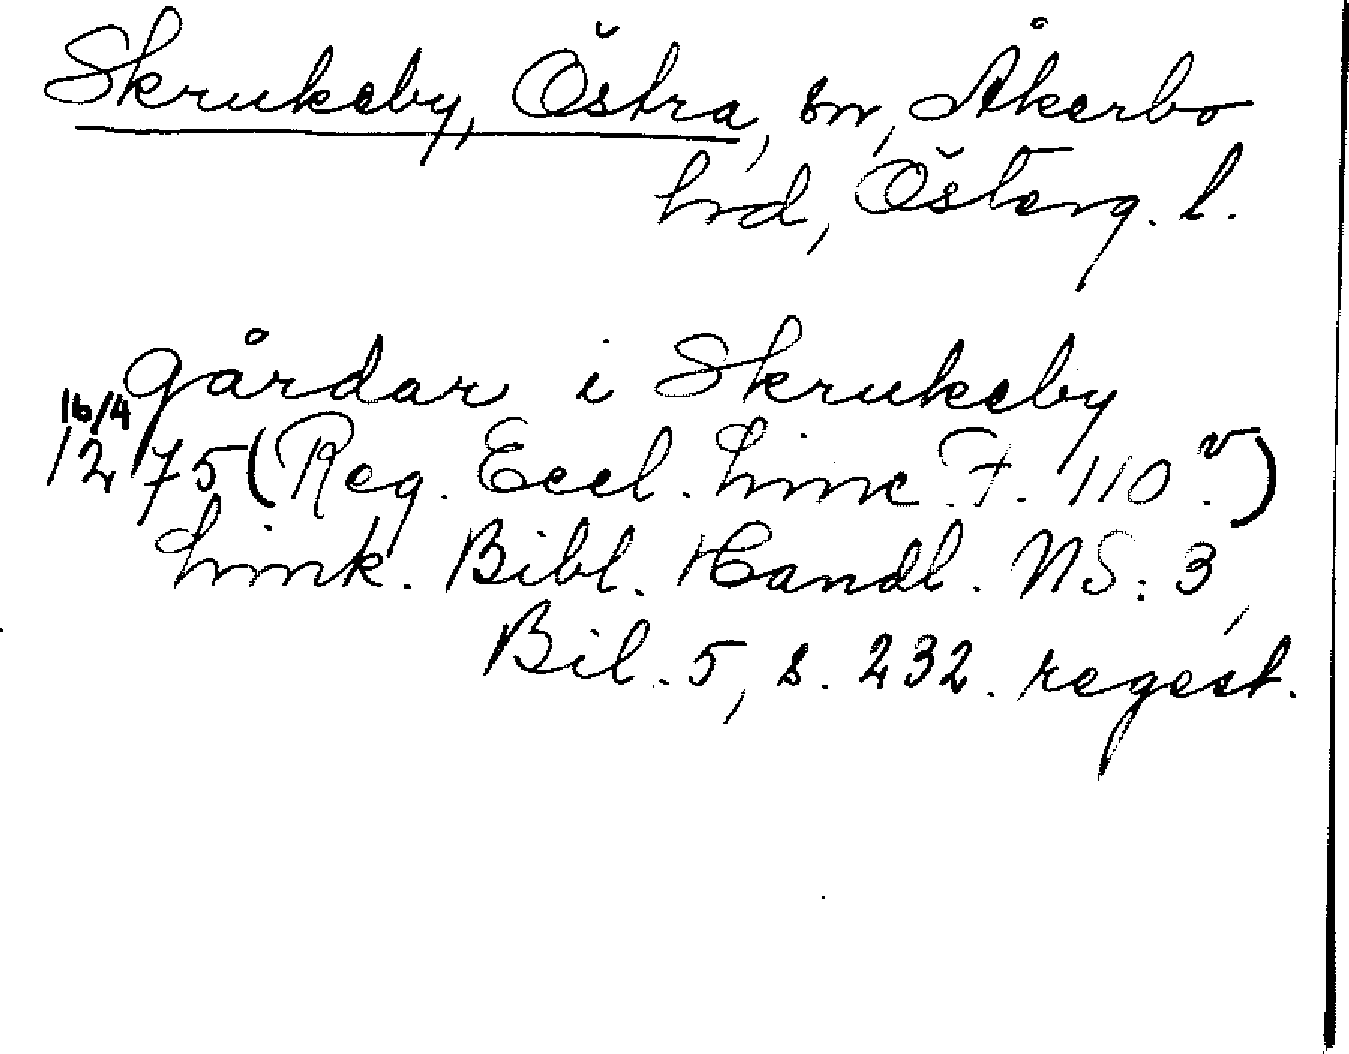 Skrukeby, Östra, sn, Åkerbo
hrd, Österg. l.
gårdar i Skrukeby
16/4
1275 (Reg. Eccl. Linc F. 110 v.)
Link. Bibl. Handl. NS: 3,
Bil. 5, s. 232. regest.